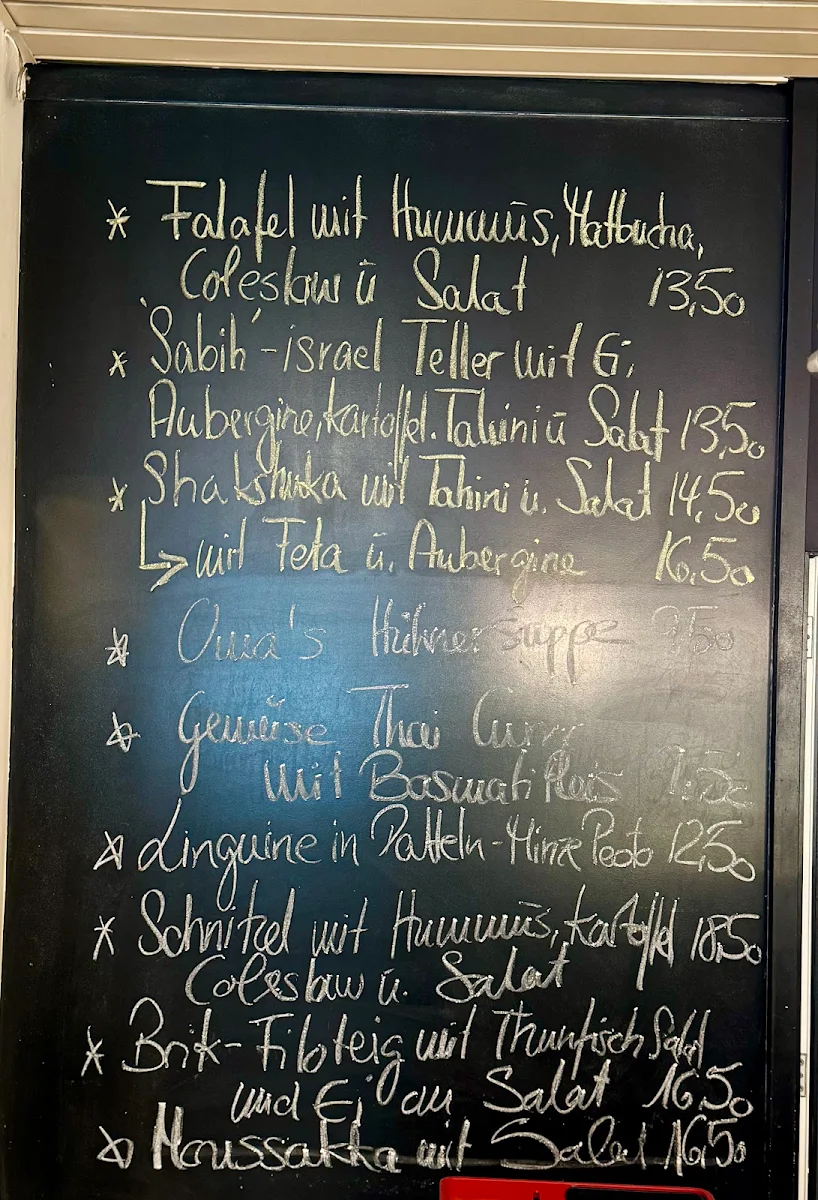 * Falafel mit Hummus, Matbucha,
Coleslaw ü Salat 13,50
* 'Sabih'-israel Teller mit Ei,
Aubergine, Kartoffel. Tahini ü Salat 13,50
* Shakshuka mit Tahini ü. Salat 14,50
↳ mit Feta ü. Aubergine 16,50
* Oma's Hühnersuppe 9,50
* Gemüse Thai Curry
mit Basmati Reis
* Linguine in Datteln-Minze Pesto 12,50
* Schnitzel mit Hummus, Kartoffel 18,50
Coleslaw ü. Salat
* Brik-Filoteig mit Thunfisch Salat
und Ei an Salat 16,50
* Moussakka mit Salat 16,50